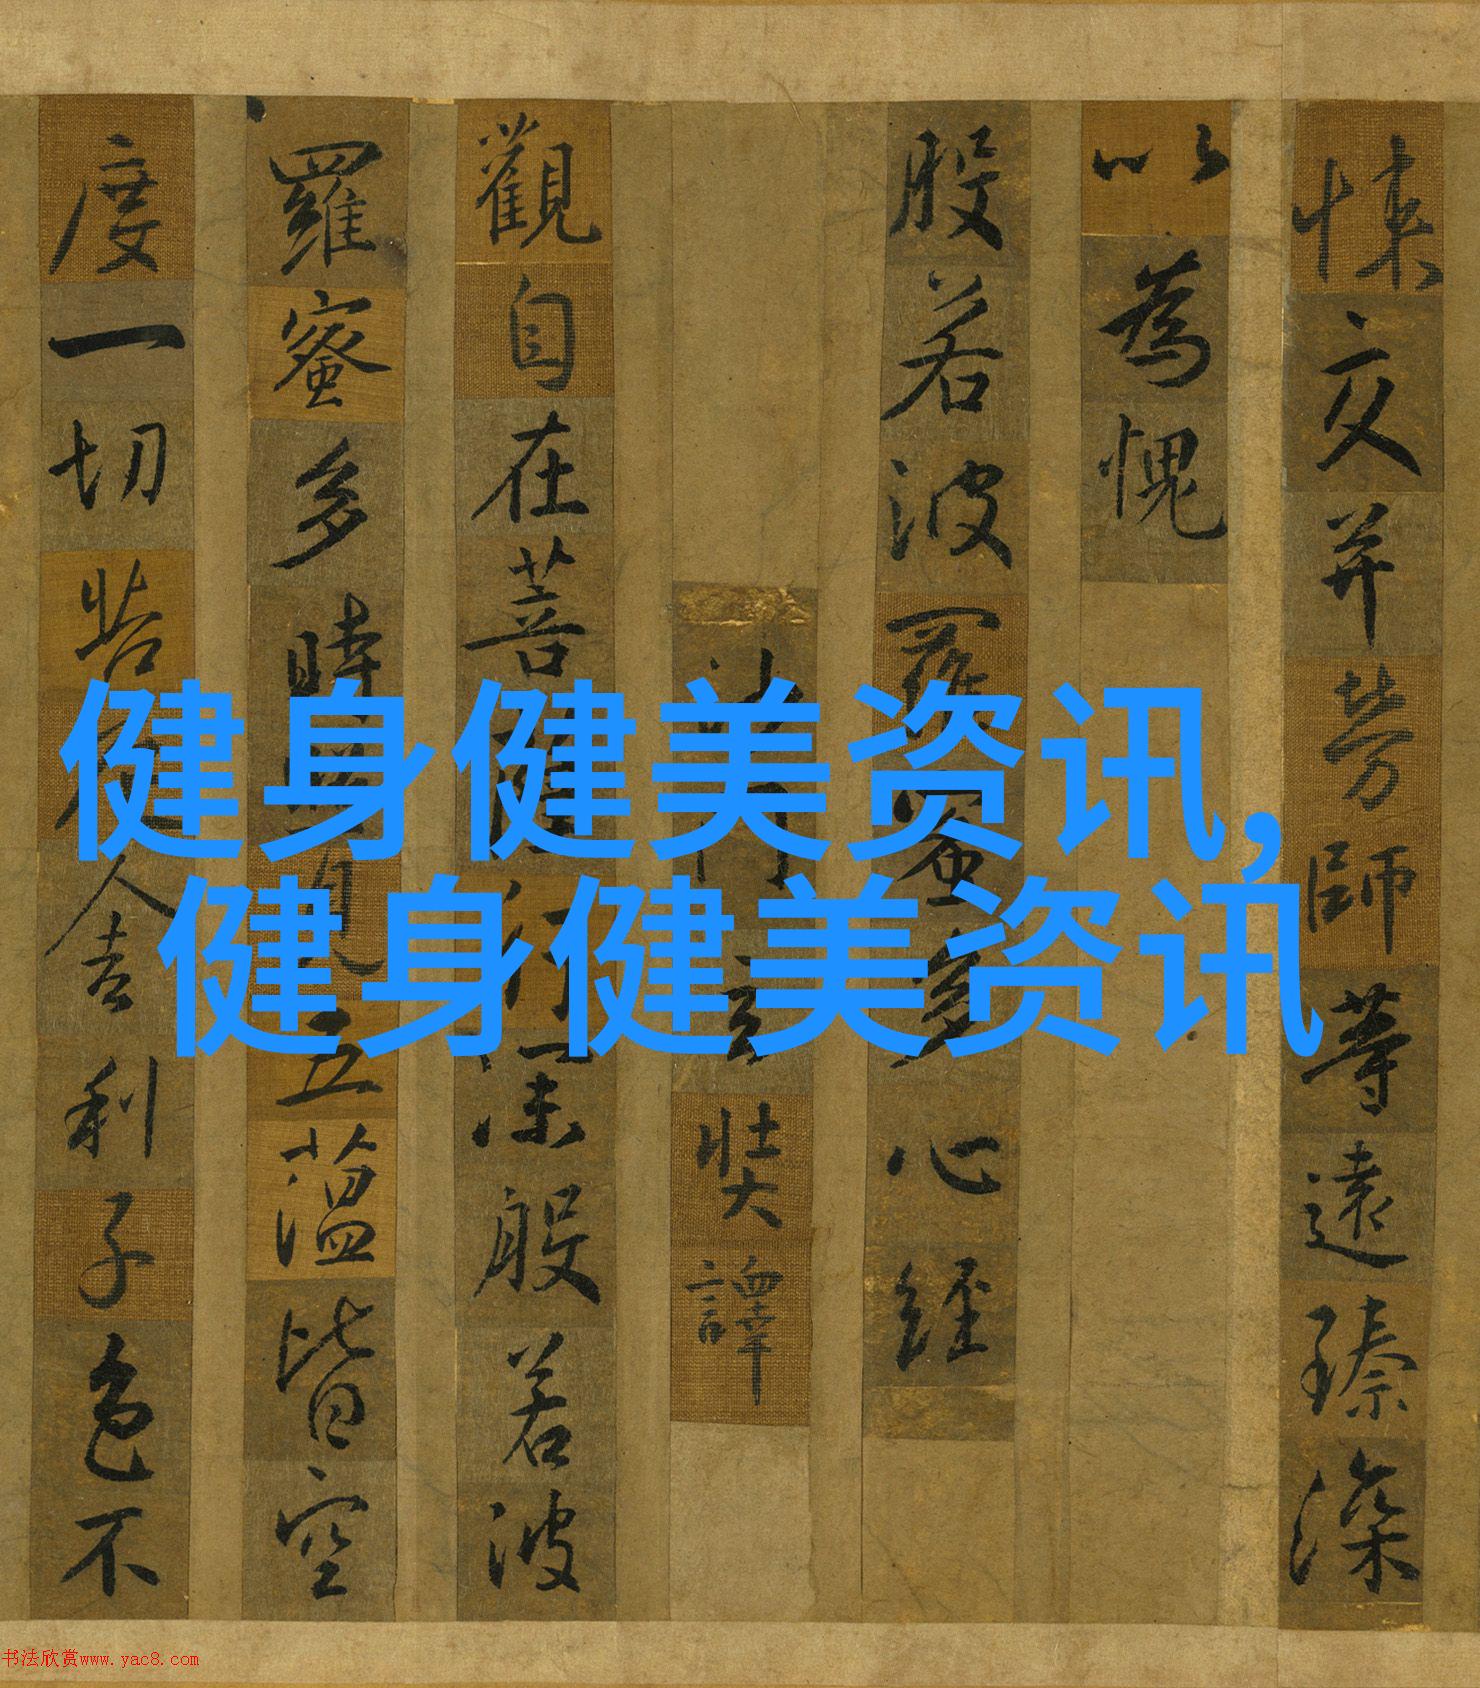 悚交并勞師等遠臻深
以為愧
般若波羅蜜多心經
沙門玄奘譯
觀自在菩薩行深般若波
羅蜜多時照見五蘊皆空
度一切苦厄舍利子色不
健身健美资讯,
健身健美资讯
书法欣赏www.yac8.com